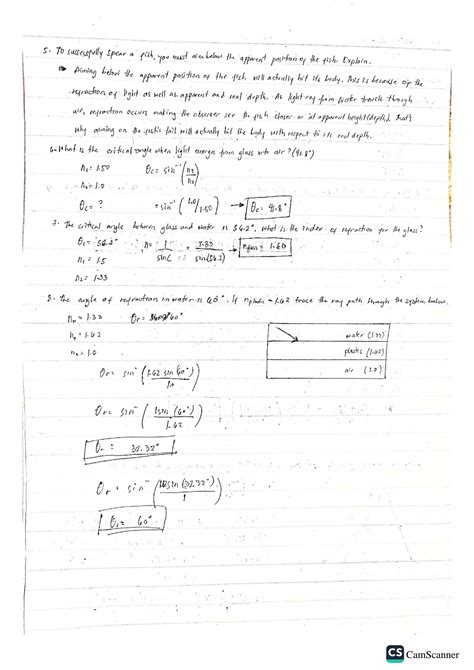 5. To successfully spear a fish, you must aim below the apparent position of the fish. Explain.
Aiming below the apparent position of the fish will actually hit its body. This is because of the
refraction of light as well as apparent and real depth. As light ray from water travels through
air, refraction occurs making the observer see the fish closer or at apparent height (depth). That's
why aiming on the fish's tail will actually hit the body with respect to its real depth.
6. What is the critical angle when light emerges from glass into air? (41.8°)
n₁ = 1.50 θc = sin⁻¹ (n₂/n₁)
n₂ = 1.0
θc = ? = sin⁻¹ (1.0/1.50) → θc = 41.8°
7. The critical angle between glass and water is 56.2°. What is the index of refraction for the glass?
θc = 56.2° n = 1/sin C = 1.33/sin(56.2) → nglass = 1.60
n₁ = 1.5
n₂ = 1.33
8. The angle of refraction in water is 60°. If = 1.62 trace the ray path through the system below.
nw = 1.33 θr = 60°
np = 1.62
na = 1.0
water (1.33)
plastic (1.62)
air (1.0)
θr = sin⁻ (1.62 sin (60°)/1.0)
θr = sin⁻ (1 sin (60°)/1.62)
θr = 32.32°
θr = sin⁻ (sin (32.32°)/1)
θr = 60°
CS CamScanner